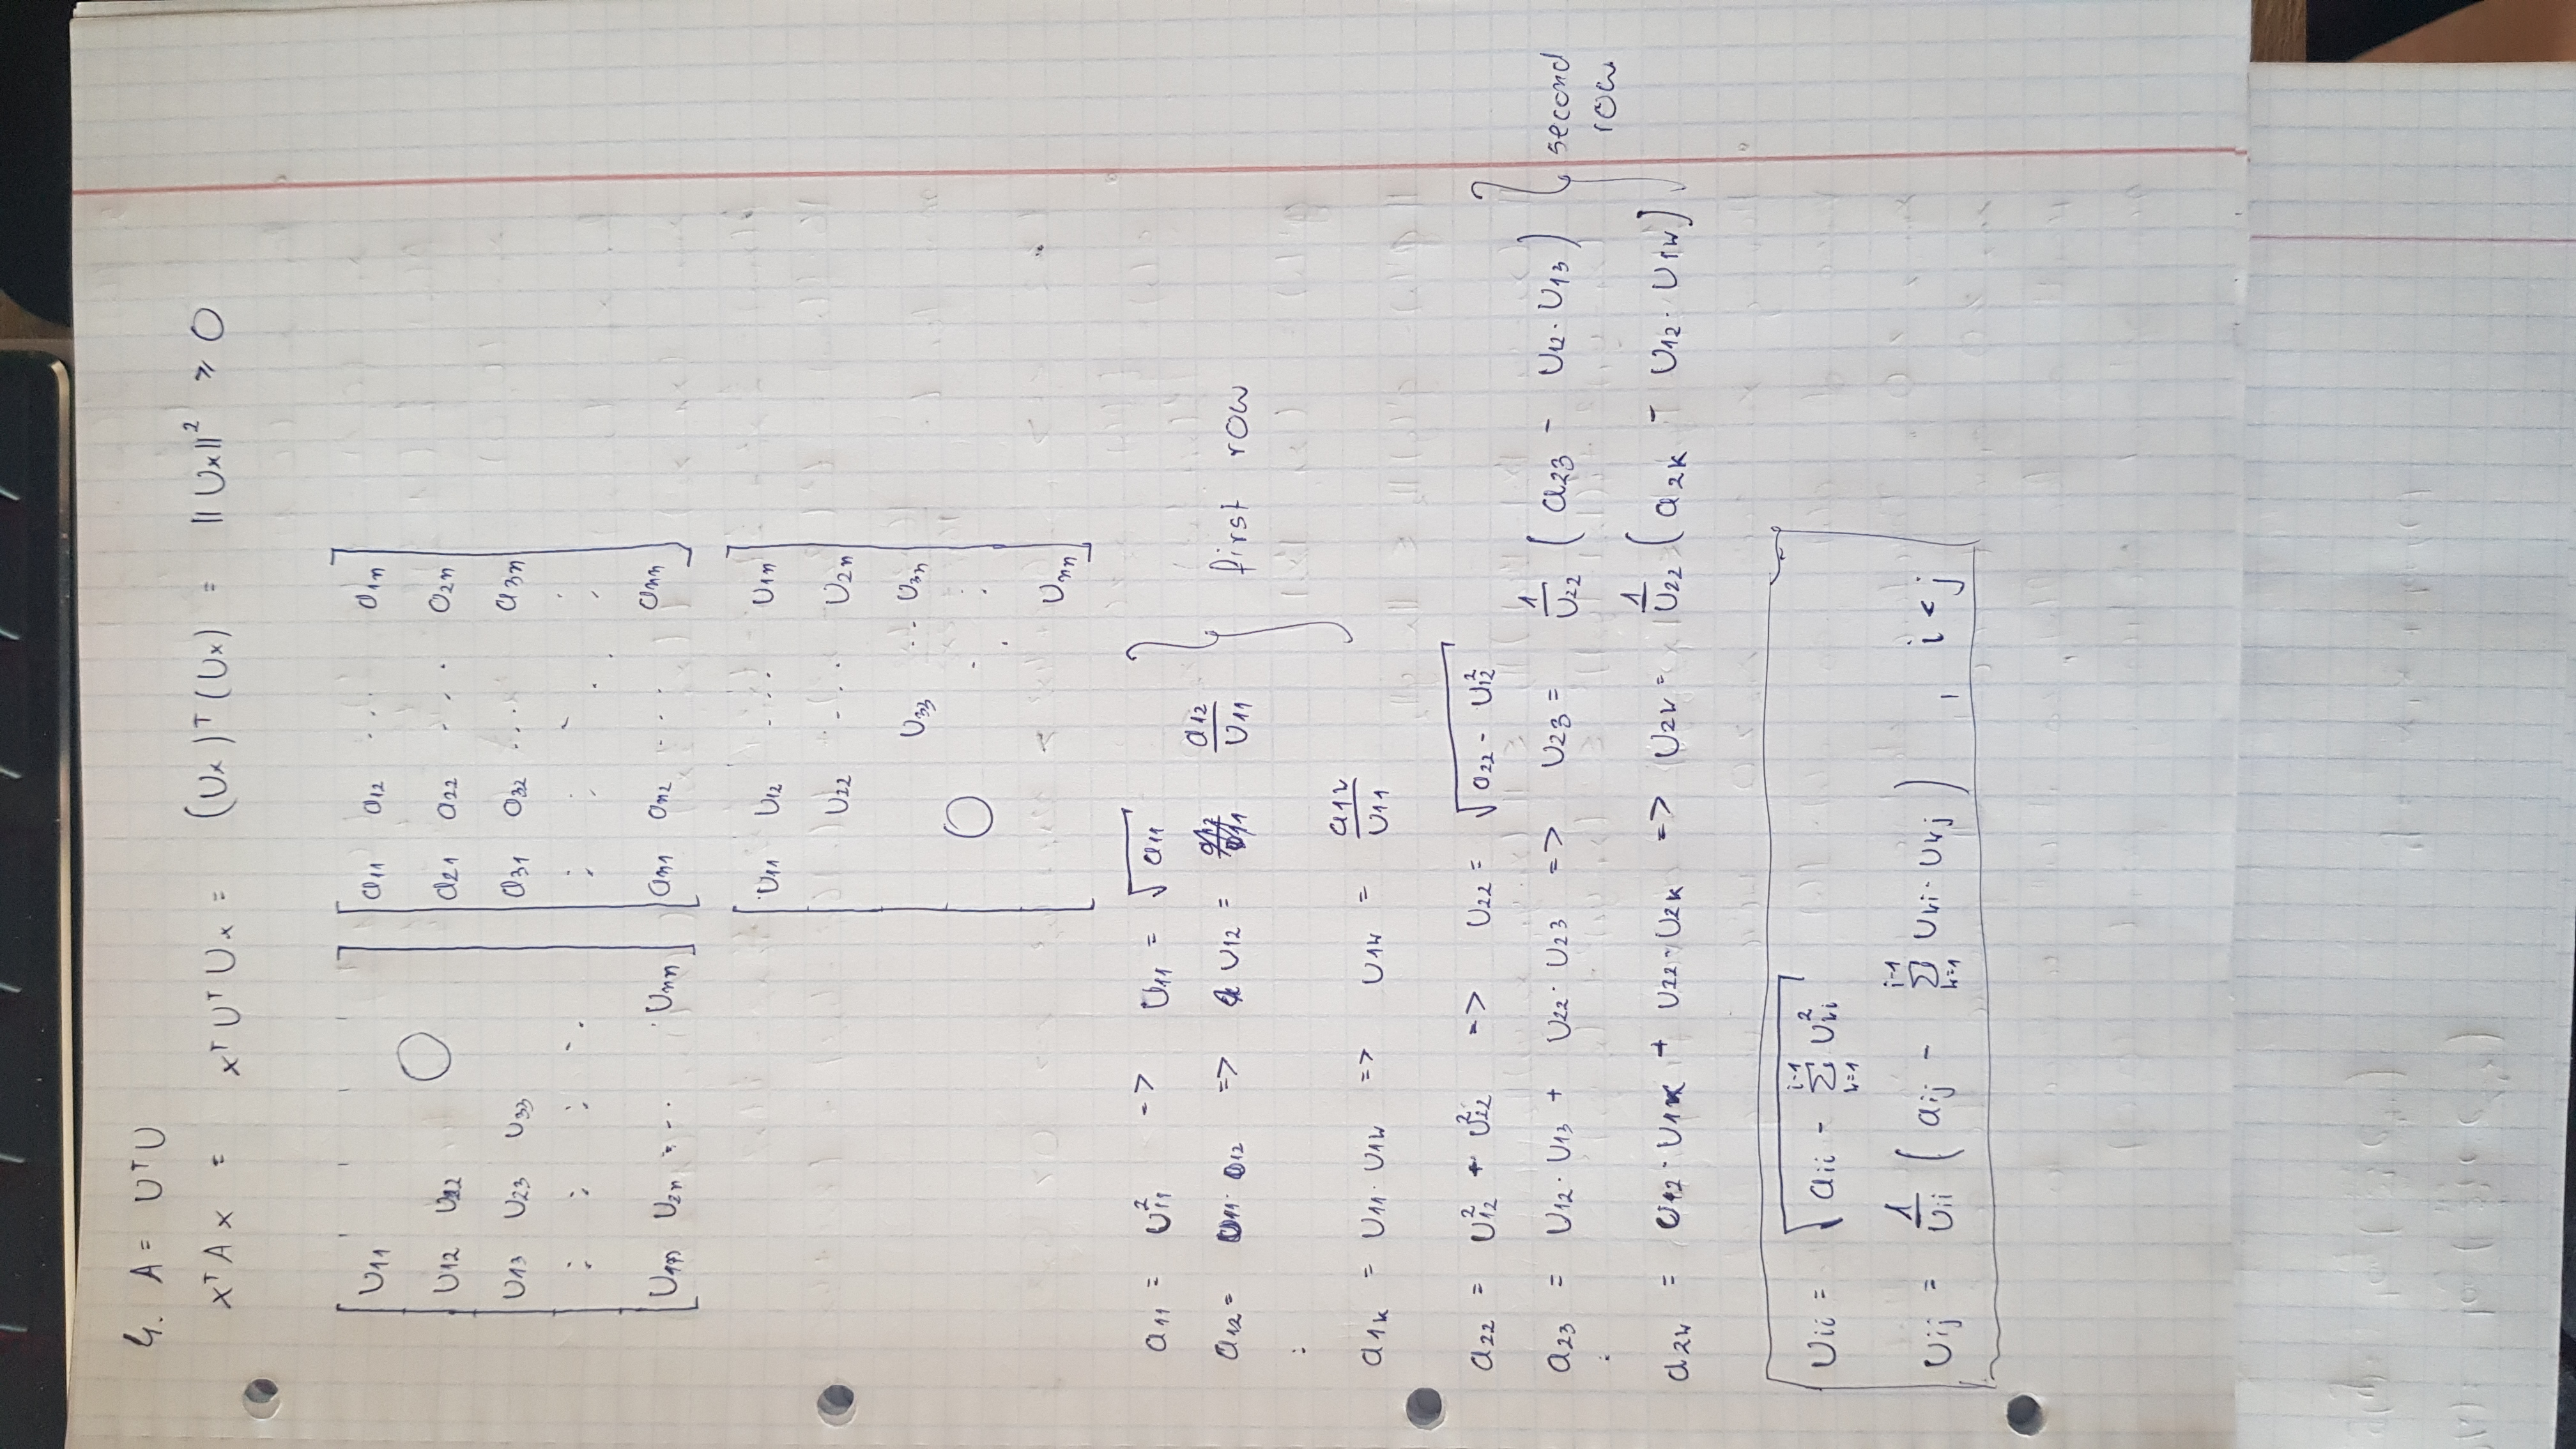 4. A = UᵀU
xᵀAx = xᵀUᵀUx = (Ux)ᵀ(Ux) = ||Ux||² ≥ 0
[ U11 ] [ a11 a12 ... a1n ]
[ U12 U22 0 ] [ a21 a22 ... a2n ]
[ U13 U23 U33 ] [ a31 a32 ... a3n ]
[ ⋮ ⋮ ⋮ ⋱ ] [ ⋮ ⋮ ⋱ ⋮ ]
[ U1n U2n ... Unn ] [ an1 an2 ... ann ]
[ U11 U12 ... U1n ]
[ U22 ... U2n ]
[ U33 ... U3n ]
[ 0 ⋱ ⋮ ]
[ Unn ]
a11 = U11² -> U11 = √a11
a12 = U11 · U12 => U12 = a12/U11 } first row
⋮
a1k = U11 · U1k => U1k = a1k/U11
a22 = U12² + U22² -> U22 = √(a22 - U12²)
a23 = U12 · U13 + U22 · U23 => U23 = 1/U22 (a23 - U12 · U13) } second
⋮ row
a2k = U12 · U1k + U22 · U2k => U2k = 1/U22 (a2k - U12 · U1k)
Uii = √(aii - Σ_{k=1}^{i-1} Uki²)
Uij = 1/Uii (aij - Σ_{k=1}^{i-1} Uki · Ukj) , i < j